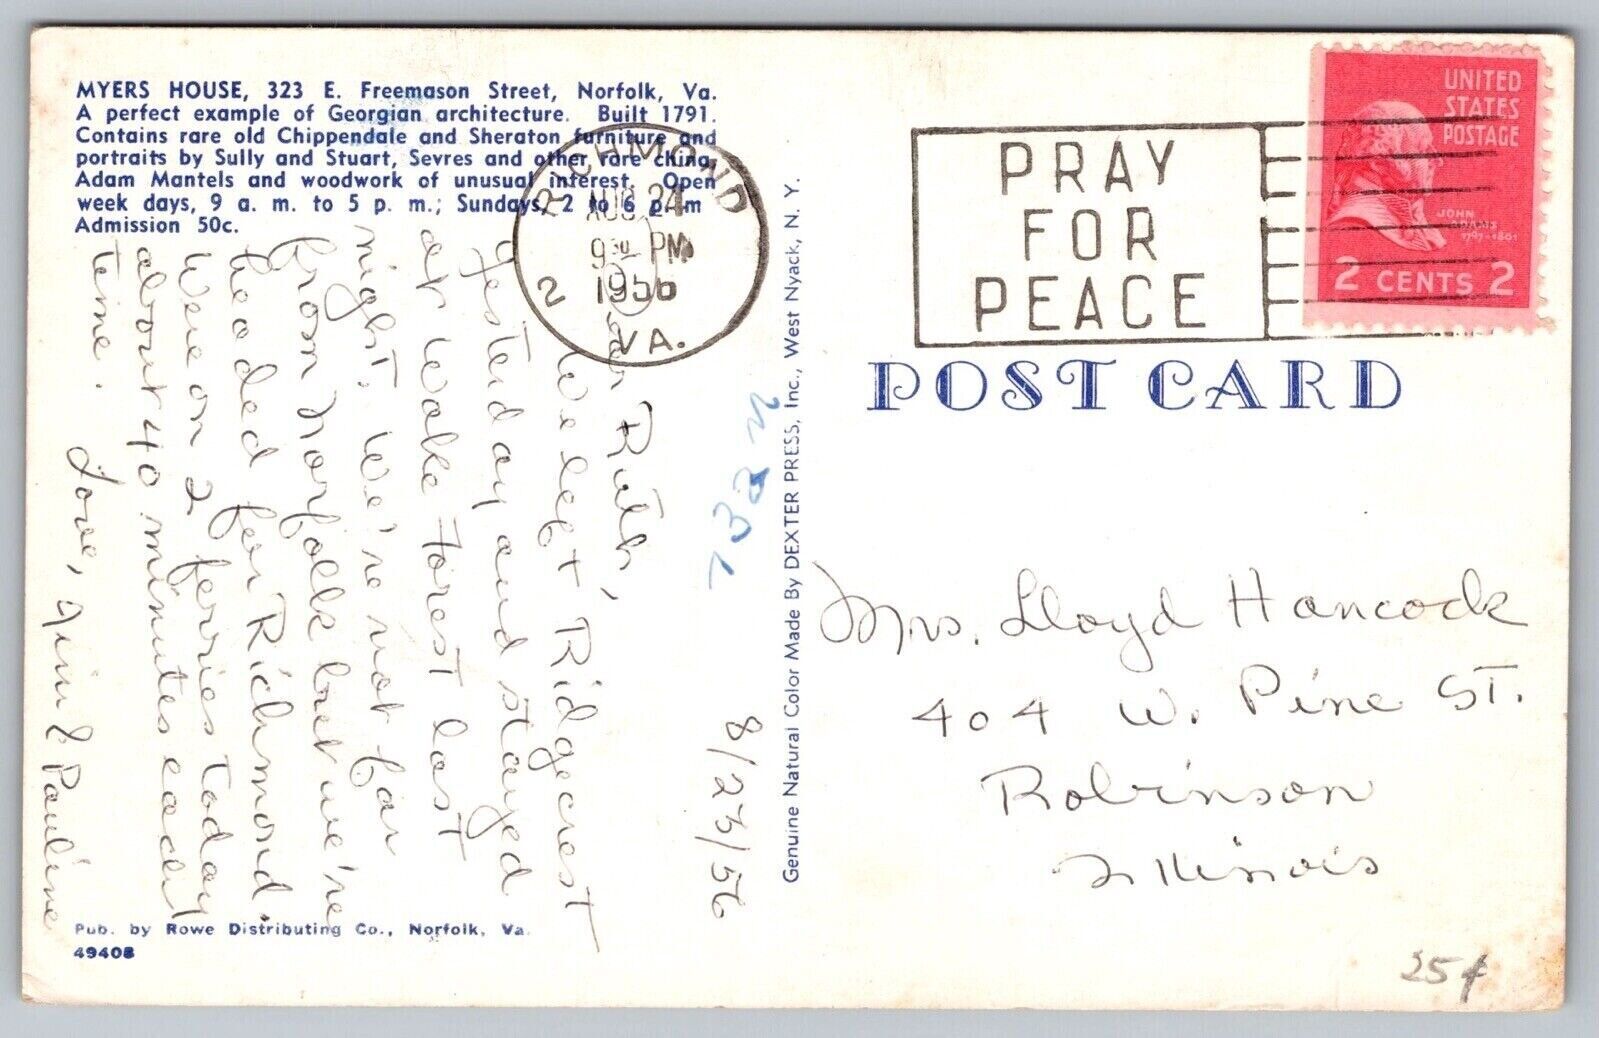 MYERS HOUSE, 323 E. Freemason Street, Norfolk, Va.
A perfect example of Georgian architecture. Built 1791.
Contains rare old Chippendale and Sheraton furniture and
portraits by Sully and Stuart, Sevres and other rare china,
Adam Mantels and woodwork of unusual interest. Open
week days, 9 a. m. to 5 p. m.; Sundays, 2 to 6 p. m
Admission 50c.
RICHMOND
AUG 24
9 30 PM
1956
2
VA.
PRAY
FOR
PEACE
UNITED
STATES
POSTAGE
JOHN
ADAMS
1797-1801
2 CENTS 2
POST CARD
8/23/56
Dear Ruth,
We left Ridgecrest
yesterday and stayed
at Wake Forest last
night. We're not far
from Norfolk but we're
headed for Richmond.
Were on 2 ferries today
about 40 minutes each
time.
Love, Jim & Pauline
Genuine Natural Color Made By DEXTER PRESS, Inc., West Nyack, N. Y.
Mrs. Lloyd Hancock
404 W. Pine St.
Robinson
Illinois
Pub. by Rowe Distributing Co., Norfolk, Va.
49408
25¢